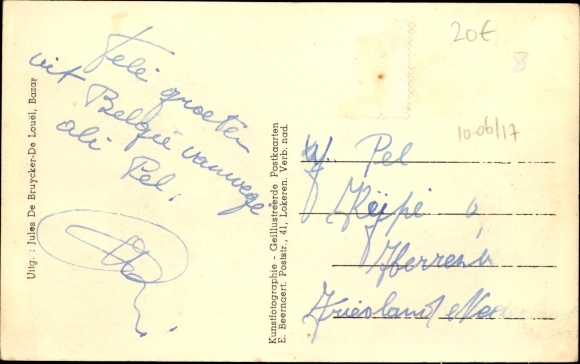 Uitg. : Jules De Bruycker-De Louël, Bazar
Vele groeten
uit België vanwege
ali Pel.
Kunstfotographie - Geïllustreerde Postkaarten
E. Beernaert. Poststr., 41, Lokeren. Verb. nad.
20€
10-06/17
Pel
Friesland Ned